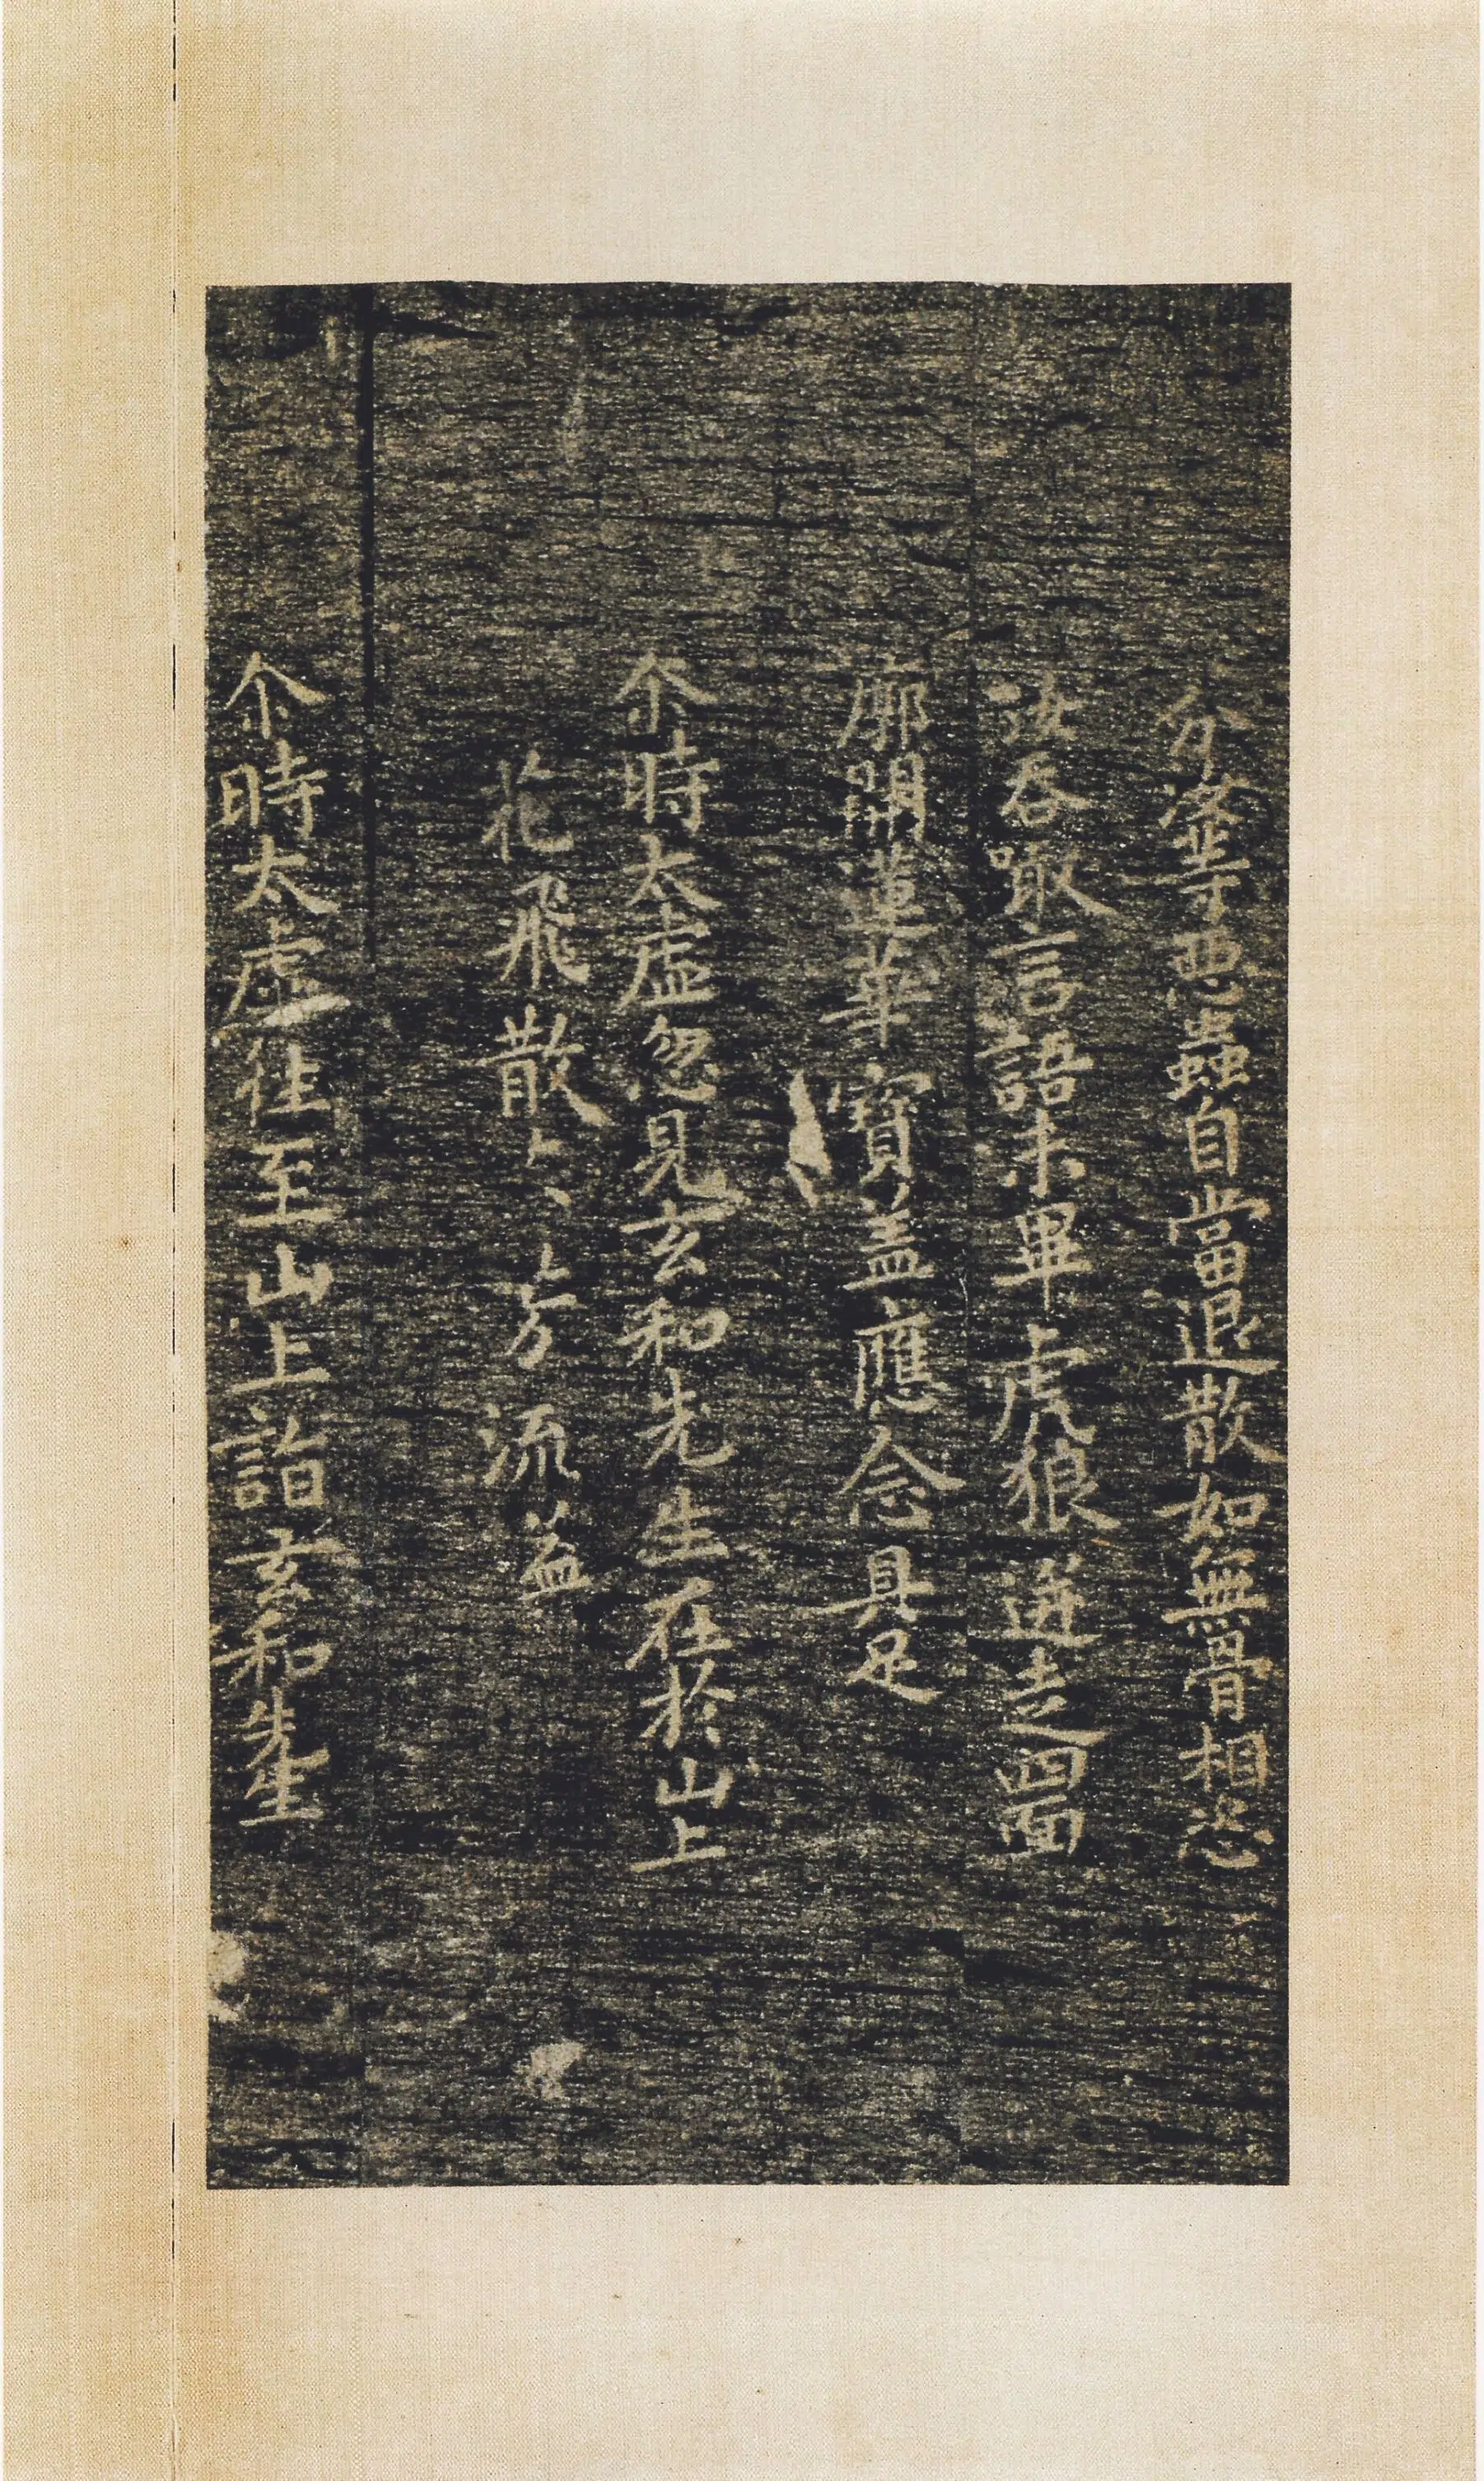 分等惡蟲自當退散如無骨相恣
汝吞噉言語未畢虎狼迸走四面
廓開蓮華寶盖應念具足
尒時太虛忽見玄和先生在於山上
花飛散芳流盖
尒時太虛往至山上詣玄和先生